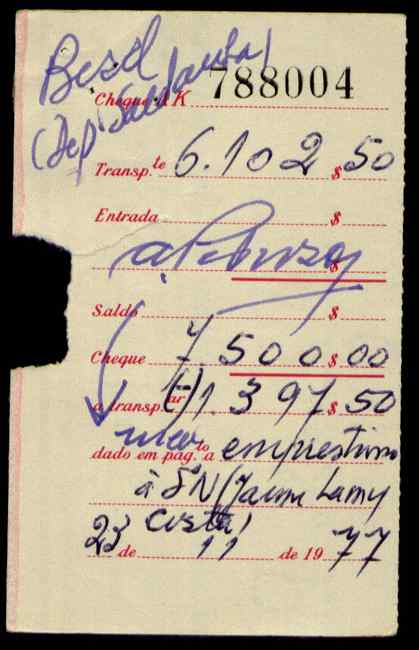 Besd
Cheque AK 788004
(Dep Saldanha)
Transp.te 6.102 $ 50
Entrada $
$
Saldo $
Cheque 7 500 $ 00
a transp.ar (-) 1.397 $ 50
dado em pag.to a emprestimo
à SN (Jaime Lamy
Costa)
23 de 11 de 19 77